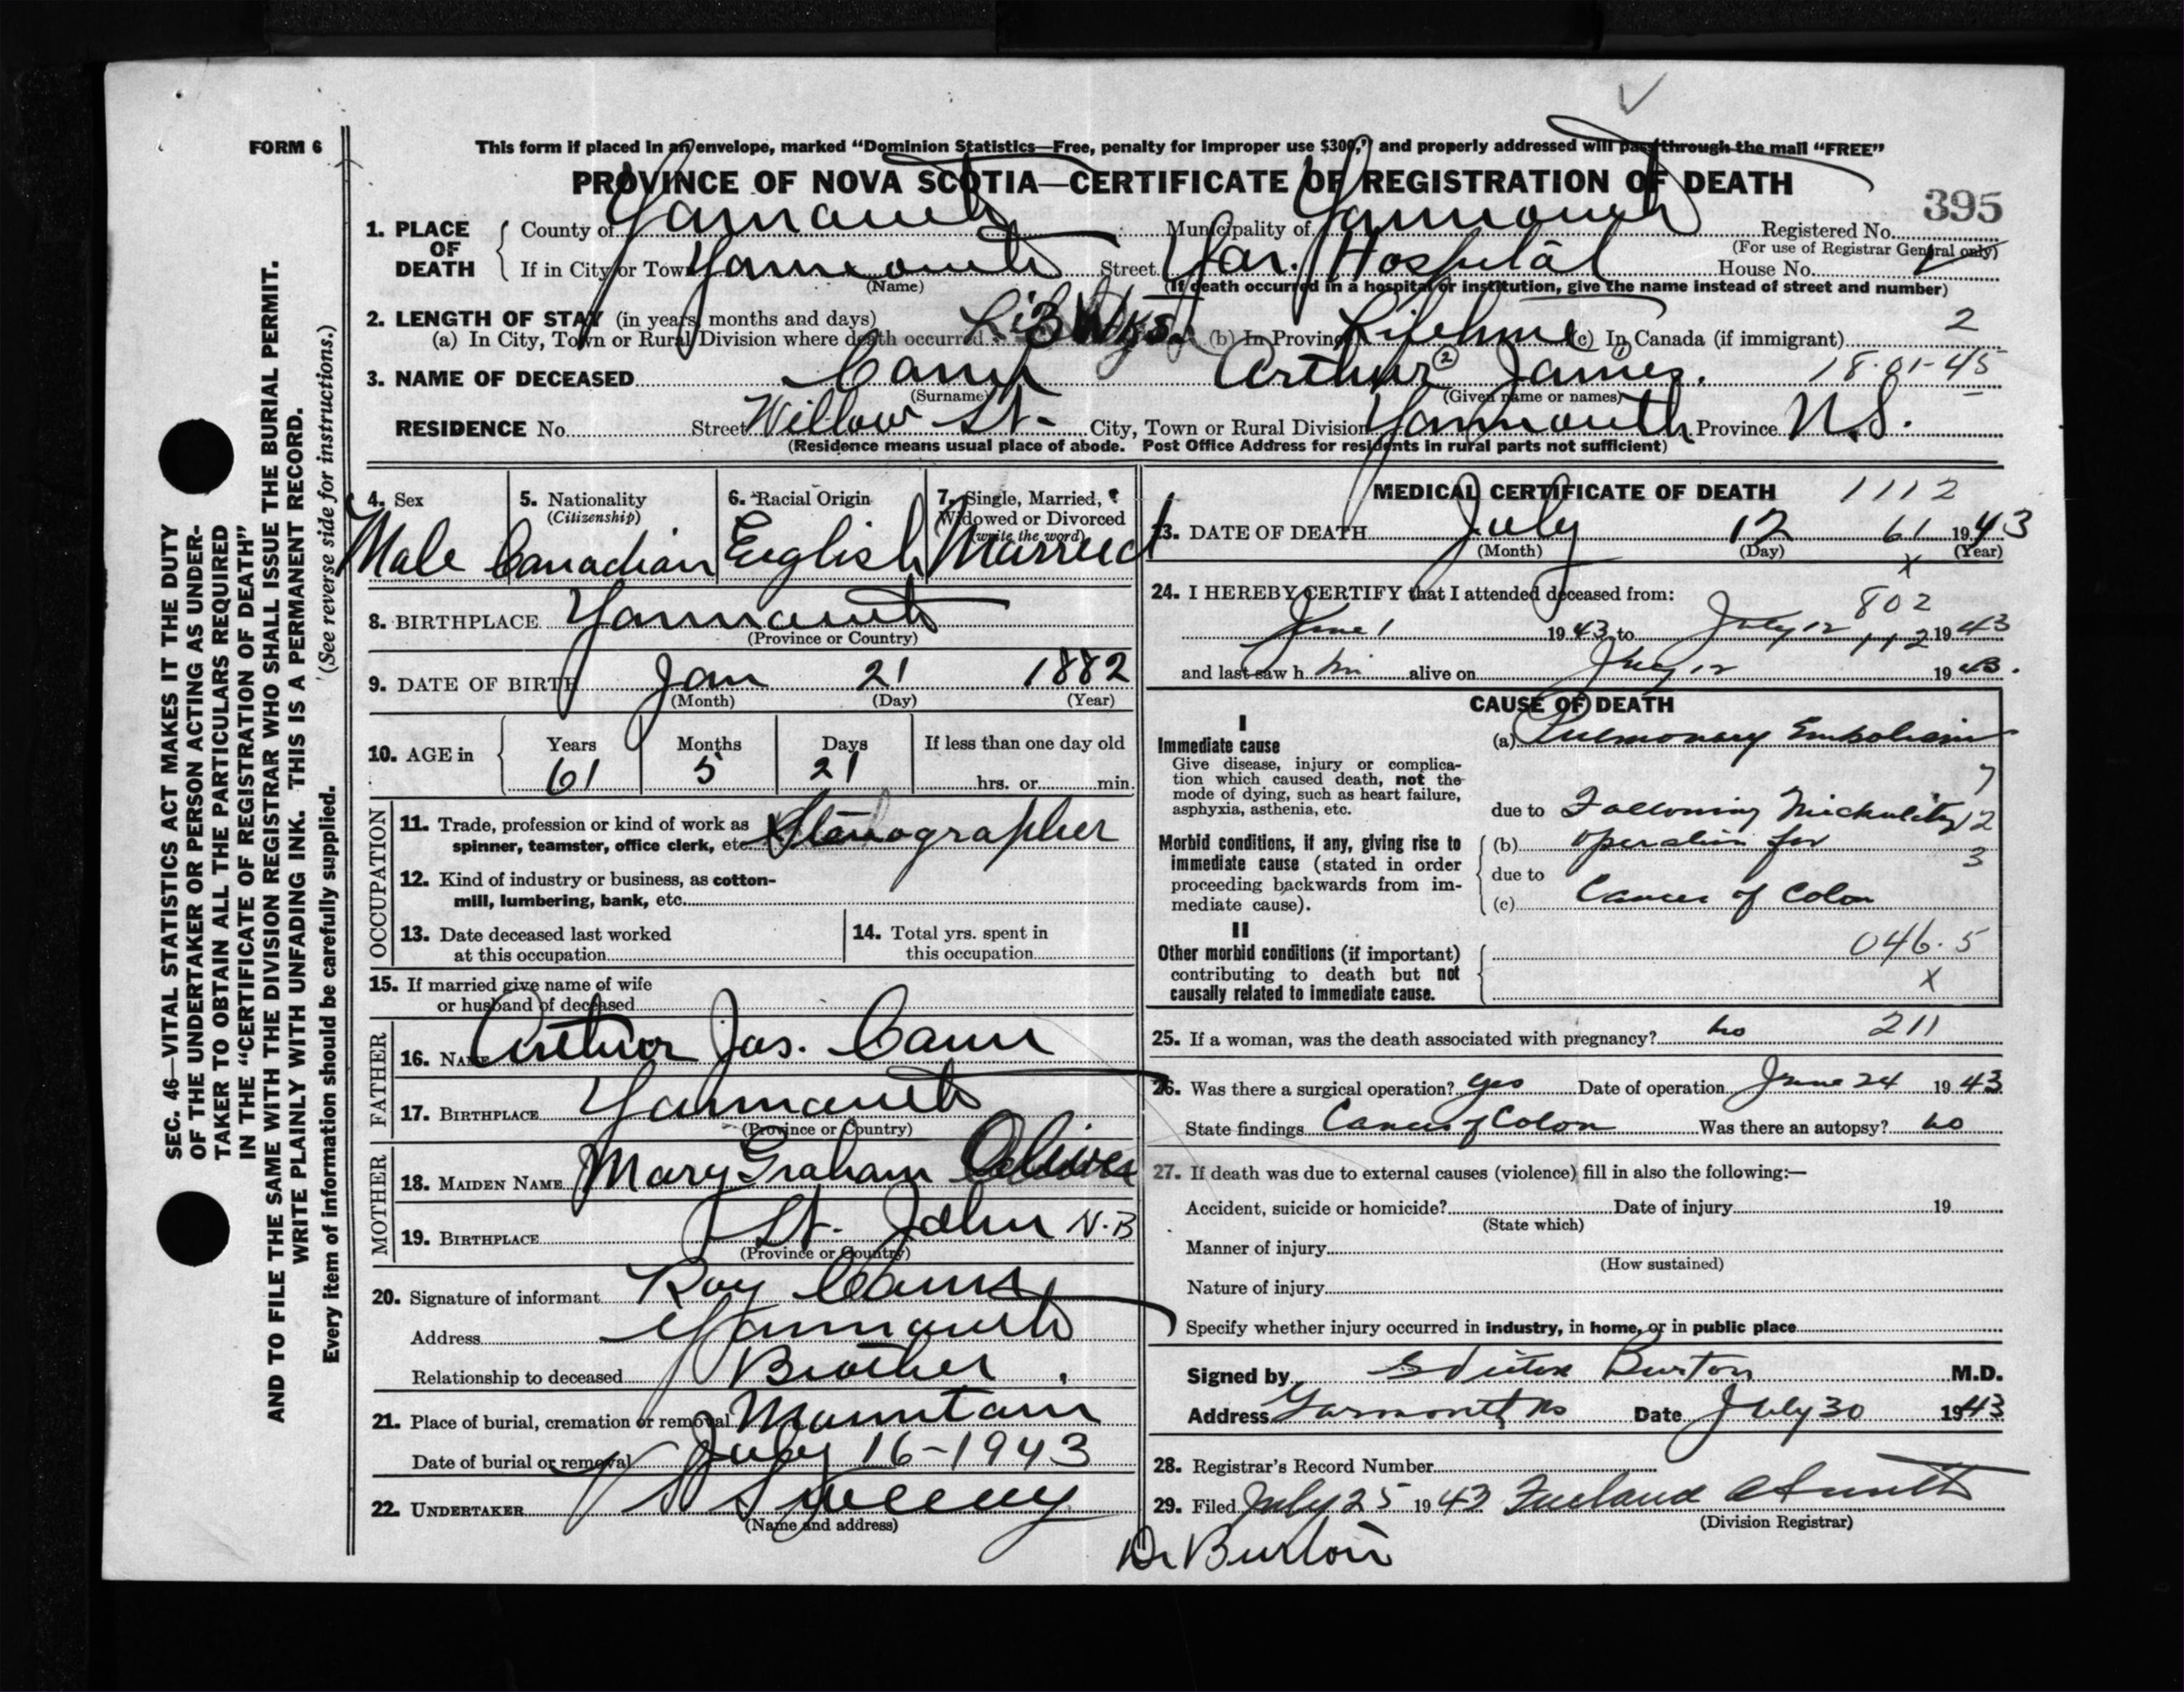 FORM 6
This form if placed in an envelope, marked “Dominion Statistics—Free, penalty for improper use $300,” and properly addressed will pass through the mail “FREE”
PROVINCE OF NOVA SCOTIA—CERTIFICATE OF REGISTRATION OF DEATH
395
1. PLACE OF DEATH
County of Yarmouth Municipality of Yarmouth Registered No.
(For use of Registrar General only)
If in City or Town Yarmouth Street Yar. Hospital House No.
(Name) (If death occurred in a hospital or institution, give the name instead of street and number)
2. LENGTH OF STAY (in years, months and days)
(a) In City, Town or Rural Division where death occurred 3 Wks. (b) In Province Lifetime (c) In Canada (if immigrant) 2
3. NAME OF DECEASED Cann Arthur (2) James (1). 18-01-45
(Surname) (Given name or names)
RESIDENCE No. Street Willow St- City, Town or Rural Division Yarmouth Province N.S.
(Residence means usual place of abode. Post Office Address for residents in rural parts not sufficient)
4. Sex
Male
5. Nationality
(Citizenship)
Canadian
6. Racial Origin
English
7. Single, Married,
Widowed or Divorced
(write the word)
Married
8. BIRTHPLACE Yarmouth
(Province or Country)
9. DATE OF BIRTH Jan 21 1882
(Month) (Day) (Year)
10. AGE in
Years Months Days If less than one day old
61 5 21 hrs. or min.
OCCUPATION
11. Trade, profession or kind of work as
spinner, teamster, office clerk, etc. Stenographer
12. Kind of industry or business, as cotton-
mill, lumbering, bank, etc.
13. Date deceased last worked
at this occupation
14. Total yrs. spent in
this occupation
15. If married give name of wife
or husband of deceased
FATHER
16. NAME Arthur Jas. Cann
17. BIRTHPLACE Yarmouth
(Province or Country)
MOTHER
18. MAIDEN NAME Mary Graham Oliver
19. BIRTHPLACE St. John N.B
(Province or Country)
20. Signature of informant Roy Cann
Address Yarmouth
Relationship to deceased Brother
21. Place of burial, cremation or removal Mountain
Date of burial or removal July 16-1943
22. UNDERTAKER Sweeny
(Name and address)
MEDICAL CERTIFICATE OF DEATH 1112
23. DATE OF DEATH July 12 61 1943
(Month) (Day) (Year)
x
24. I HEREBY CERTIFY that I attended deceased from:
802
June 1 1943 to July 12 112 1943
and last saw him alive on July 12 1943.
CAUSE OF DEATH
I
Immediate cause
Give disease, injury or complica-
tion which caused death, not the
mode of dying, such as heart failure,
asphyxia, asthenia, etc.
(a) Pulmonary Embolism
7
due to Following Mickulitz 12
Morbid conditions, if any, giving rise to
immediate cause (stated in order
proceeding backwards from im-
mediate cause).
(b) operation for
3
due to
(c) Cancer of Colon
II
Other morbid conditions (if important)
contributing to death but not
causally related to immediate cause.
046.5
X
25. If a woman, was the death associated with pregnancy? no 211
26. Was there a surgical operation? yes Date of operation June 24 1943
State findings Cancer of Colon Was there an autopsy? no
27. If death was due to external causes (violence) fill in also the following:—
Accident, suicide or homicide? Date of injury 19
(State which)
Manner of injury
(How sustained)
Nature of injury
Specify whether injury occurred in industry, in home, or in public place
Signed by Burton M.D.
Address Yarmouth NS Date July 30 1943
28. Registrar's Record Number
29. Filed July 25 1943
(Division Registrar)
Dr Burton
SEC. 46—VITAL STATISTICS ACT MAKES IT THE DUTY
OF THE UNDERTAKER OR PERSON ACTING AS UNDER-
TAKER TO OBTAIN ALL THE PARTICULARS REQUIRED
IN THE “CERTIFICATE OF REGISTRATION OF DEATH”
AND TO FILE THE SAME WITH THE DIVISION REGISTRAR WHO SHALL ISSUE THE BURIAL PERMIT.
WRITE PLAINLY WITH UNFADING INK. THIS IS A PERMANENT RECORD.
Every item of information should be carefully supplied. (See reverse side for instructions.)